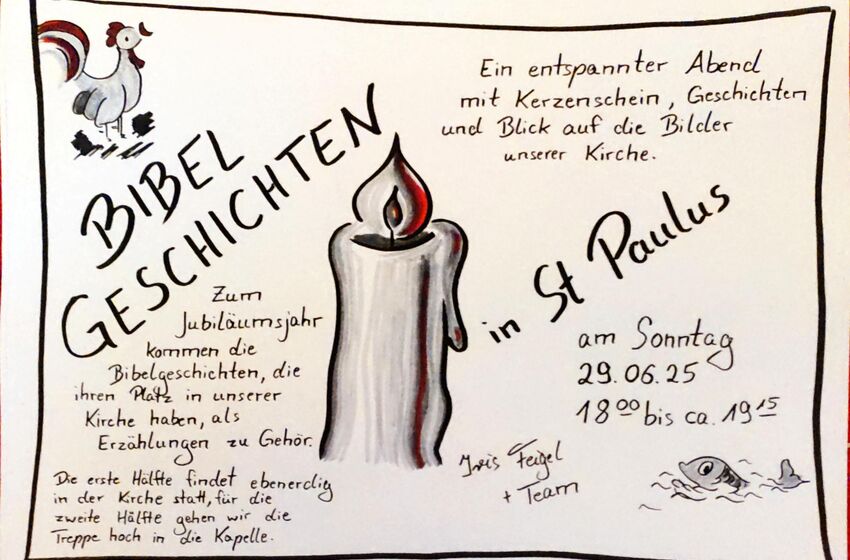 Ein entspannter Abend
mit Kerzenschein, Geschichten
und Blick auf die Bilder
unserer Kirche.
BIBEL
GESCHICHTEN
in St Paulus
Zum
Jubiläumsjahr
kommen die
Bibelgeschichten, die
ihren Platz in unserer
Kirche haben, als
Erzählungen zu Gehör.
am Sonntag
29.06.25
18⁰⁰ bis ca. 19¹⁵
Die erste Hälfte findet ebenerdig
in der Kirche statt, für die
zweite Hälfte gehen wir die
Treppe hoch in die Kapelle.
Iris Feigel
+ Team